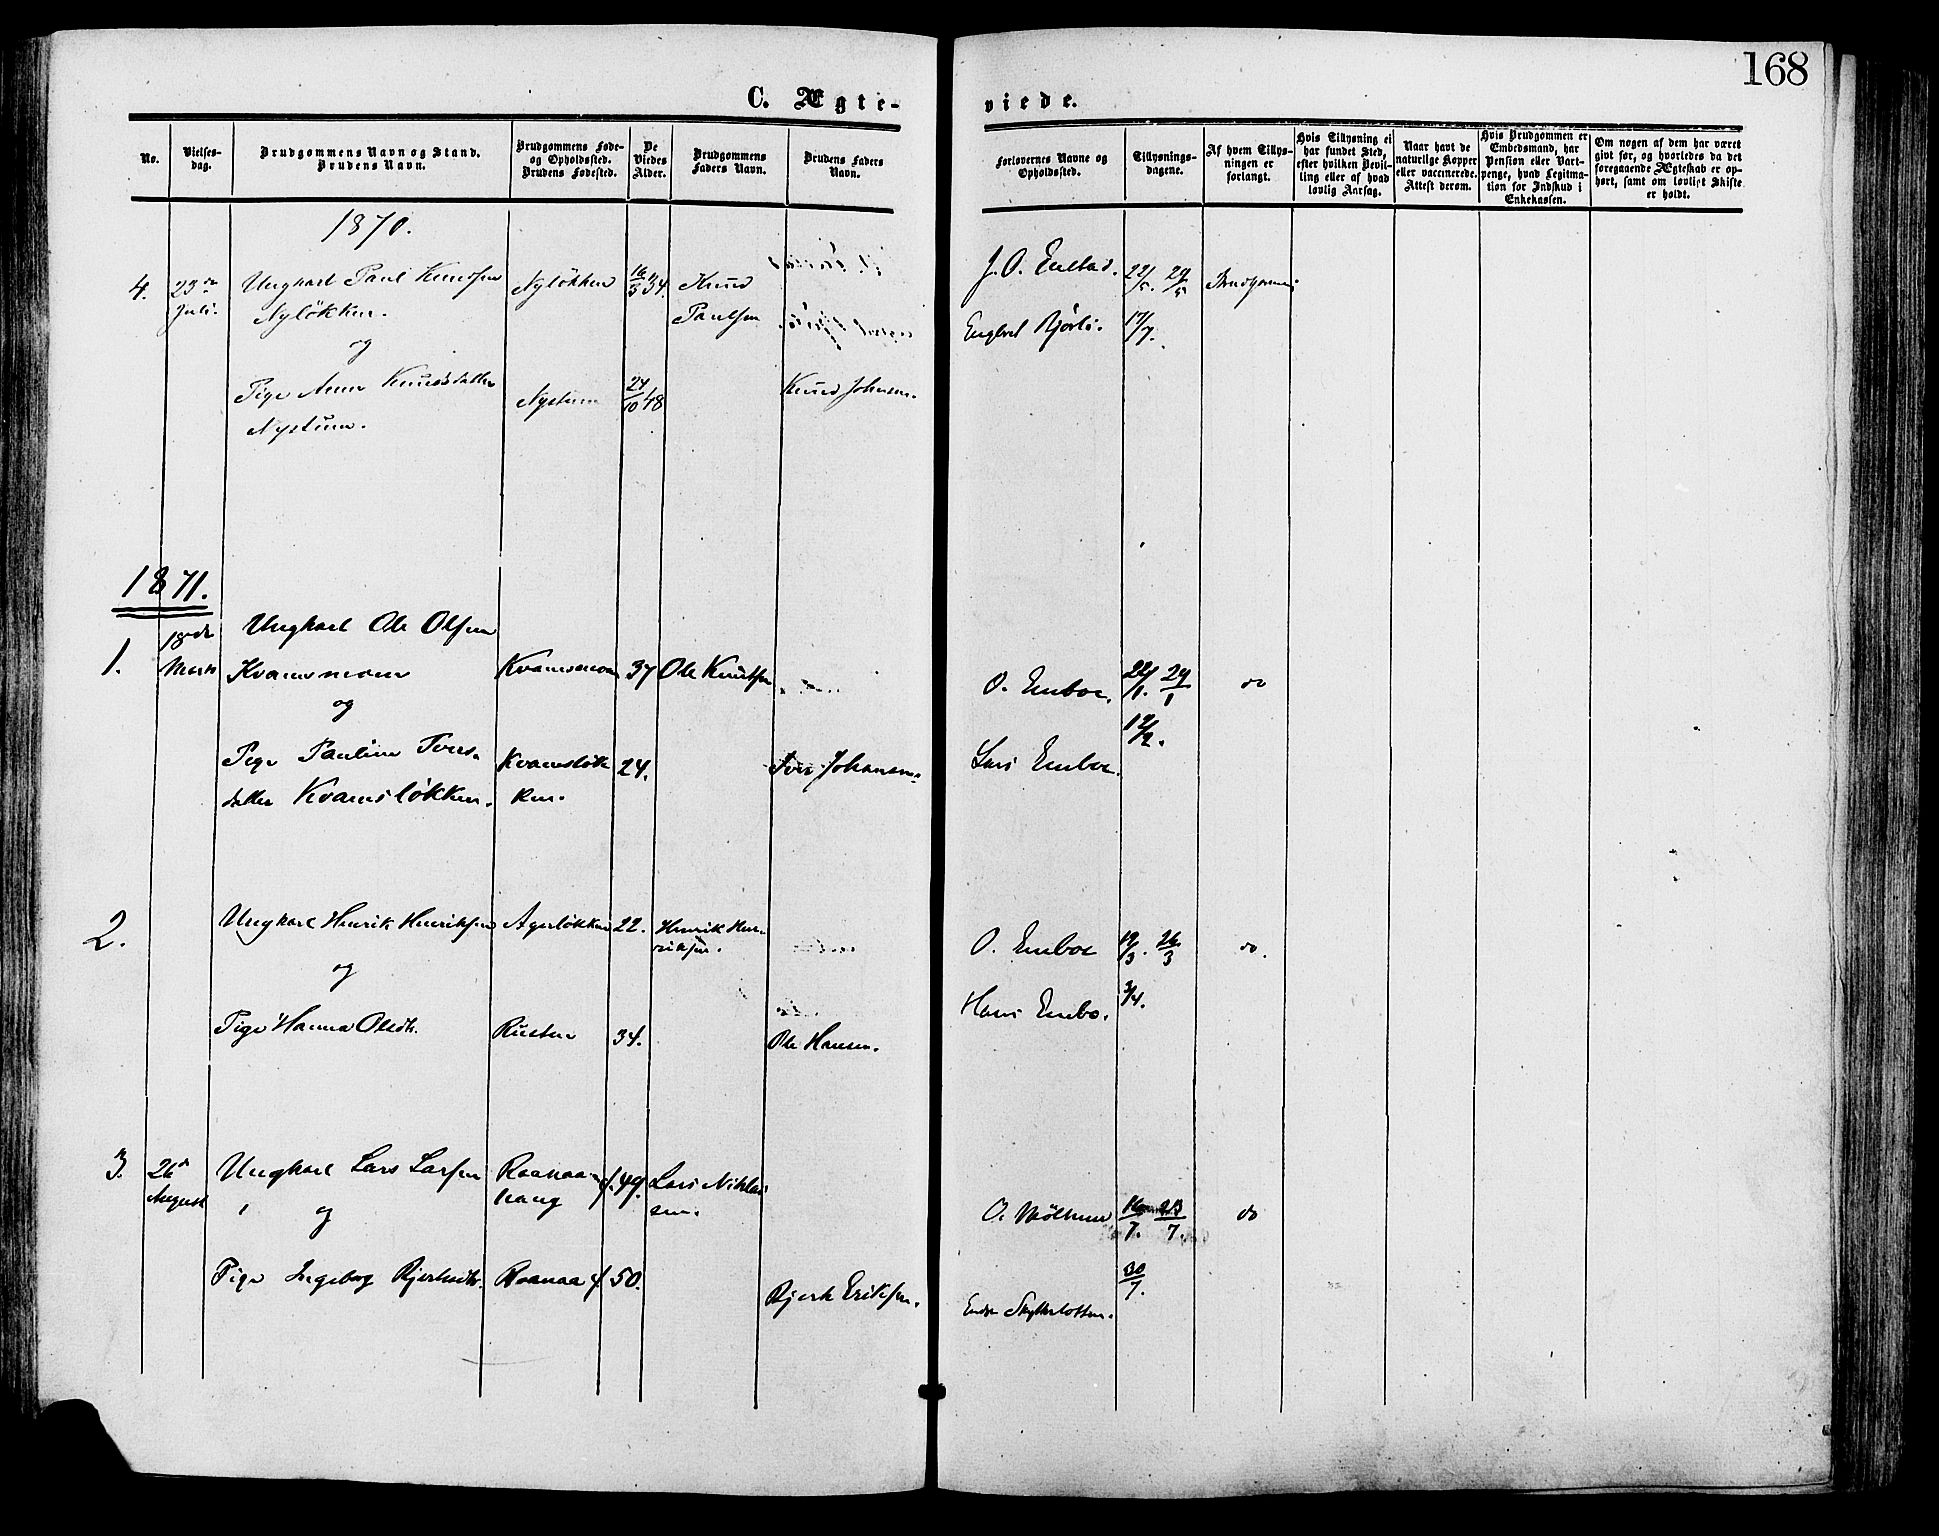 168
C. Ægte-
viede.
No.
Vielses-
dag.
Brudgommens Navn og Stand.
Brudens Navn.
Brudgommens Føde-
og Opholdssted.
Brudens Fødested.
De
Viedes
Alder.
Brudgommens
Faders Navn.
Brudens Faders
Navn.
Forlovernes Navne og
Opholdssted.
Tillysnings-
dagene.
Af hvem Tillys-
ningen er
forlangt.
Hvis Tillysning ei
har fundet Sted,
efter hvilken Bevil-
ling eller af hvad
lovlig Aarsag.
Naar havt de
naturlige Kopper
eller vaccinerede.
Attest derom.
Hvis Brudgommen er
Embedsmand, har
Pension eller Vart-
penge, hvad Legitma-
tion for Indskud i
Enkekassen.
Om nogen af dem har været
givt før, og hvorledes da det
foregaaende Ægteskab er op-
hørt, samt om lovligt Skifte
er holdt.
1870.
4.
23de
Juli.
Ungkarl Paul Knudsen
Nyløkken.
og
Pige Anne Knudsdatter
Nystuen.
Nyløkken
16/3 34.
Knud
Paulsen
Nystuen
24/10 48
Knud Johnsen.
22/5. 29/5
17/7.
Brudgommen
1871.
1.
18de
Marts
Ungkarl Ole Olsen
Kvamsmoen
og
Pige Pauline Ivers-
datter Kvamsløkken.
Kvamsmoen
37
Ole Knutsen
Kvamsløk
ken.
24.
Iver Johansen.
O. Enboe.
22/1. 29/1
12/2.
Lars Enboe.
do
2.
Ungkarl Henrik Henriksen
og
Pige Hanna Olsdtr.
Agerløkken
22.
Henrik Hen-
riksen.
Rusten
34.
Ole Hansen.
O. Enboe
19/3. 26/3
3/4.
Hans Enbo.
do.
3.
26de
August
Ungkarl Lars Larsen
og
Pige Ingeborg
Raanaa-
haug
f. 49.
Lars Niklas
sen.
Raanaa f 50.
Eriksen.
16/7. 23/7.
30/7.
do